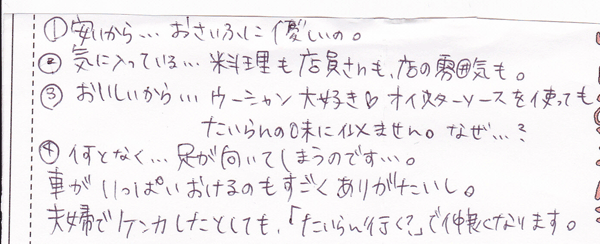 ①安いから… おさいふに優しいの。
②気に入っている… 料理も店員さんも、店の雰囲気も。
③おいしいから… ウーシャン大好き♡ オイスターソースを使っても
たいらんの味に似ません。なぜ…?
④何となく… 足が向いてしまうのです…。
車がいっぱいおけるのもすごくありがたいし。
夫婦でケンカしたとしても、「たいらん行く?」で仲良くなります。